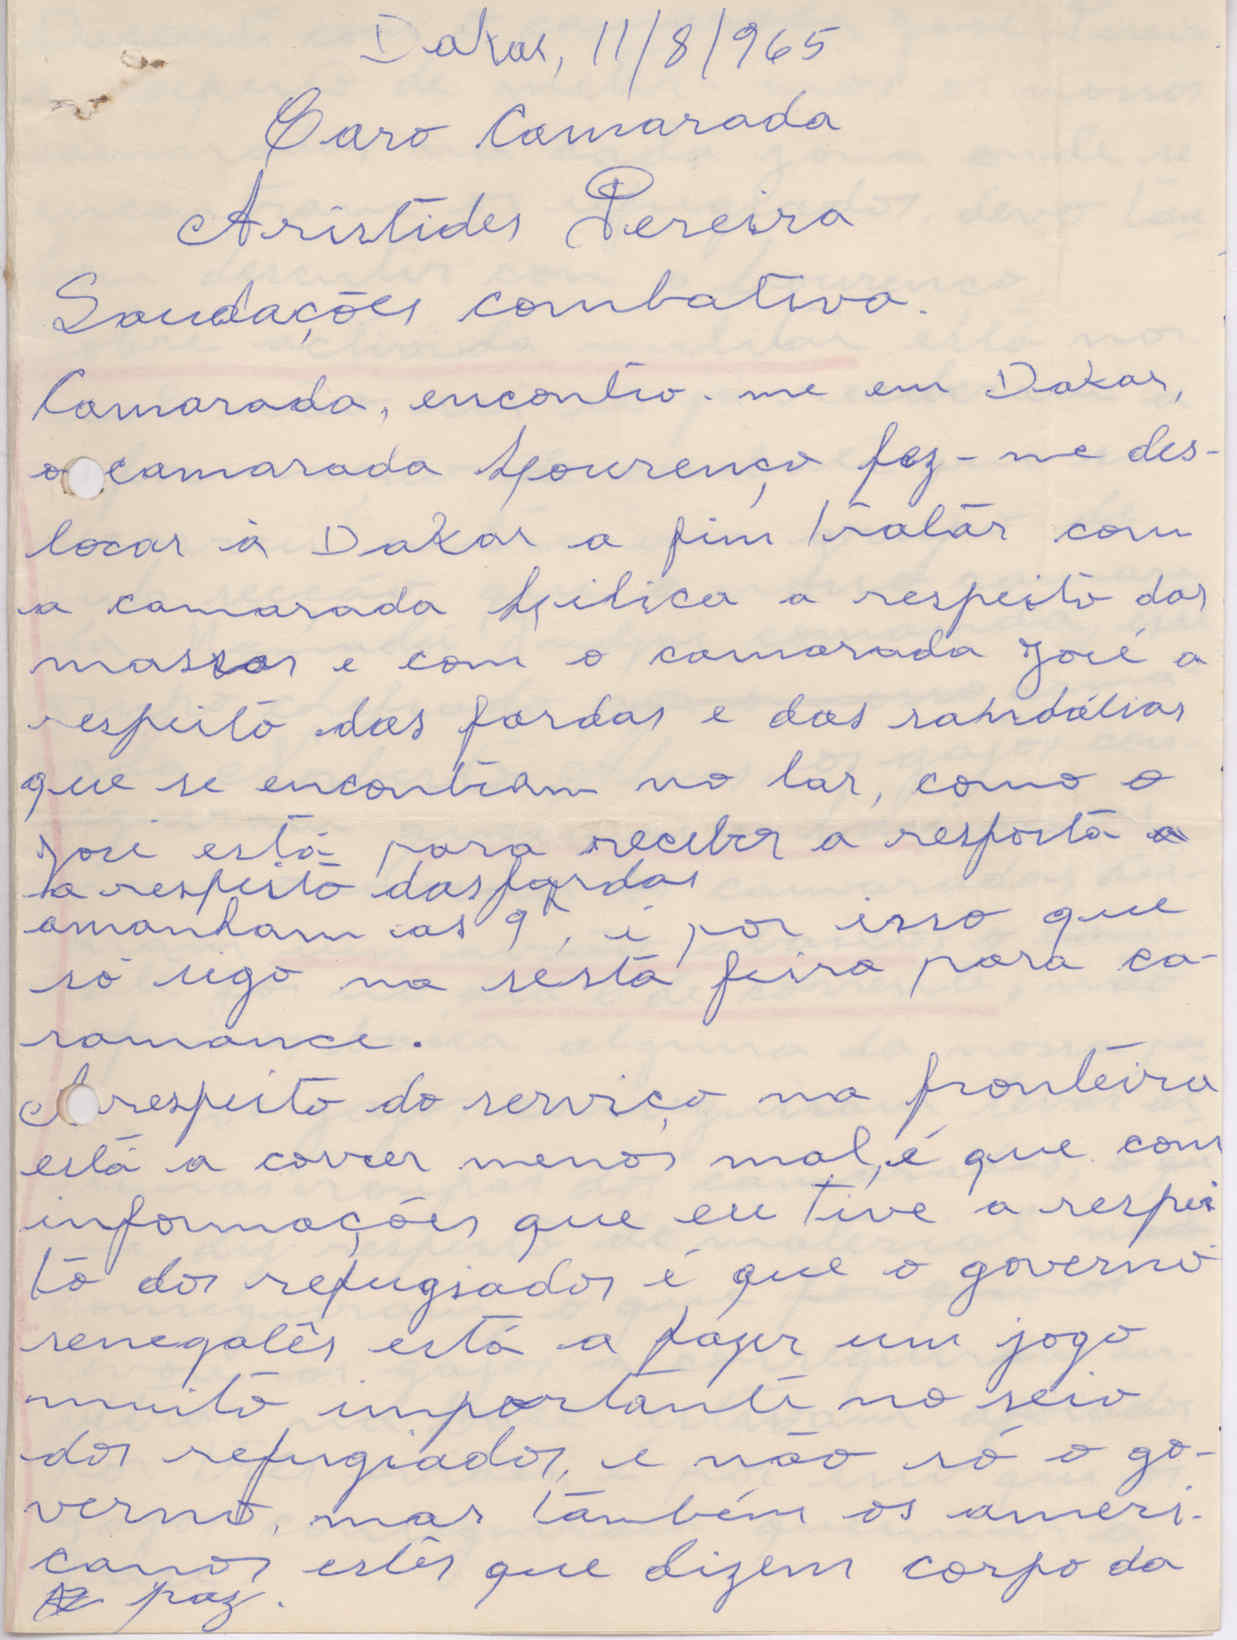 Dakar, 11/8/965
Caro Camarada
Aristides Pereira
Saudações combativa.
Camarada, encontro-me em Dakar,
o camarada Lourenço fez-me des-
locar à Dakar a fim tratar com
a camarada Lilica a respeito das
massas e com o camarada José a
respeito das fardas e das sahndálias
que se encontram no lar, como o
José está para receber a resposta
a respeito das fardas
amanham as 9h, é por isso que
só sigo na sesta feira para ca-
ramance.
A respeito do serviço na fronteira
está a correr menos mal, é que com
informações que eu tive a respei
to dos refugiados é que o governo
senegalês está a fazer um jogo
muito importante no seio
dos refugiados, e não só o go-
verno, mas também os ameri-
canos estês que dizem corpo da
paz.